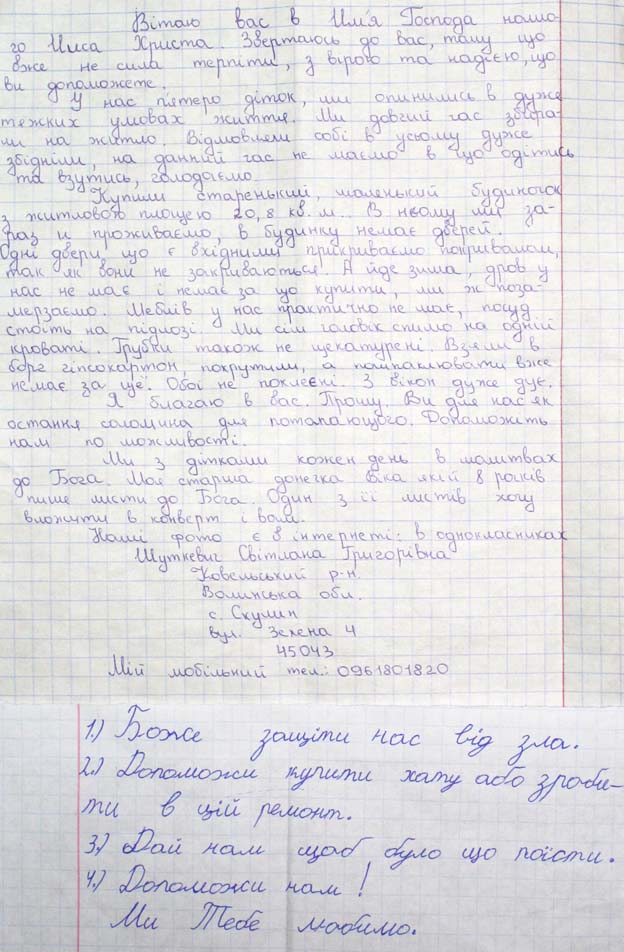 Вітаю вас в Им'я Господа нашо-
го Ииса Христа. Звертаюсь до вас, тому що
вже не сила терпіти, з вірою та надією, що
ви допоможете.
У нас п'ятеро діток, ми опинились в дуже
тежких умовах життя. Ми довгий час збира-
ли на житло. Відмовляли собі в усьому дуже
збідніли, на данний час не маємо в що одітись
та взутись, голодаємо.
Купили старенький, маленький будиночок
з житловою площею 20,8 кв.м. В ньому ми за-
раз и проживаємо, в будинку немає дверей.
Одні двері, що є вхідними прикриваємо покривалам,
так як вони не закриваються. А йде зима, дров у
нас не має і немає за що купити, ми ж поза-
мерзаємо. Меблів у нас практично не має, посуд
стоїть на підлозі. Ми сім чоловік спимо на одній
кроваті. Грубки також не щекатурені. Взяли в
борг гіпсокартон, покрутили, а пошпаклювати вже
немає за що. Обої не поклеєні. З вікон дуже дує.
Я благаю в вас. Прошу. Ви для нас як
остання соломина для потапающого. Допоможіть
нам по можливості.
Ми з дітками кожен день в молитвах
до Бога. Моя старша донечка Віка якій 8 років
пише листи до Бога. Один з її листів хочу
вложити в конверт і вам.
Наші фото є в інтернеті: в однокласниках
Шуткевич Світлана Григорівна
Ковельський р-н.
Волинська обл.
с. Скулин
вул. Зелена 4
45043
Мій мобільний тел.: 0961801820
1.) Боже защіти нас від зла.
2.) Допоможи купити хату або зроби-
ти в цій ремонт.
3.) Дай нам щоб було що поїсти.
4.) Допоможи нам!
Ми Тебе любимо.